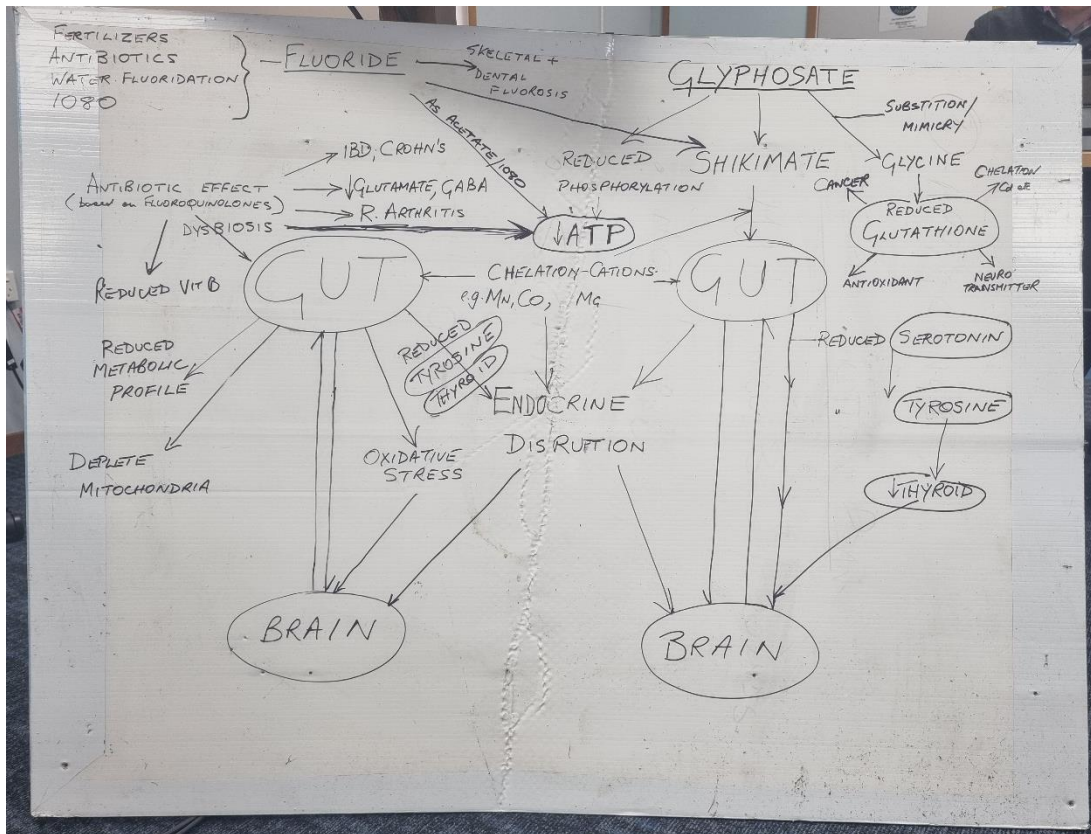 FERTILIZERS
ANTIBIOTICS
WATER FLUORIDATION
1080
FLUORIDE
SKELETAL +
DENTAL
FLUOROSIS
AS ACETATE/1080
GLYPHOSATE
SUBSTITION/
MIMICRY
REDUCED
PHOSPHORYLATION
SHIKIMATE
GLYCINE
CANCER
CHELATION
REDUCED
GLUTATHIONE
ANTIOXIDANT
NEURO
TRANSMITTER
IBD, CROHN'S
ANTIBIOTIC EFFECT
(based on FLUOROQUINOLONES)
↓GLUTAMATE, GABA
R. ARTHRITIS
DYSBIOSIS
↓ATP
REDUCED VIT B
GUT
CHELATION-CATIONS
e.g. Mn, Co, Mg
GUT
REDUCED
METABOLIC
PROFILE
REDUCED
TYROSINE
THYROID
REDUCED SEROTONIN
ENDOCRINE
DISRUPTION
TYROSINE
DEPLETE
MITOCHONDRIA
OXIDATIVE
STRESS
↓THYROID
BRAIN
BRAIN